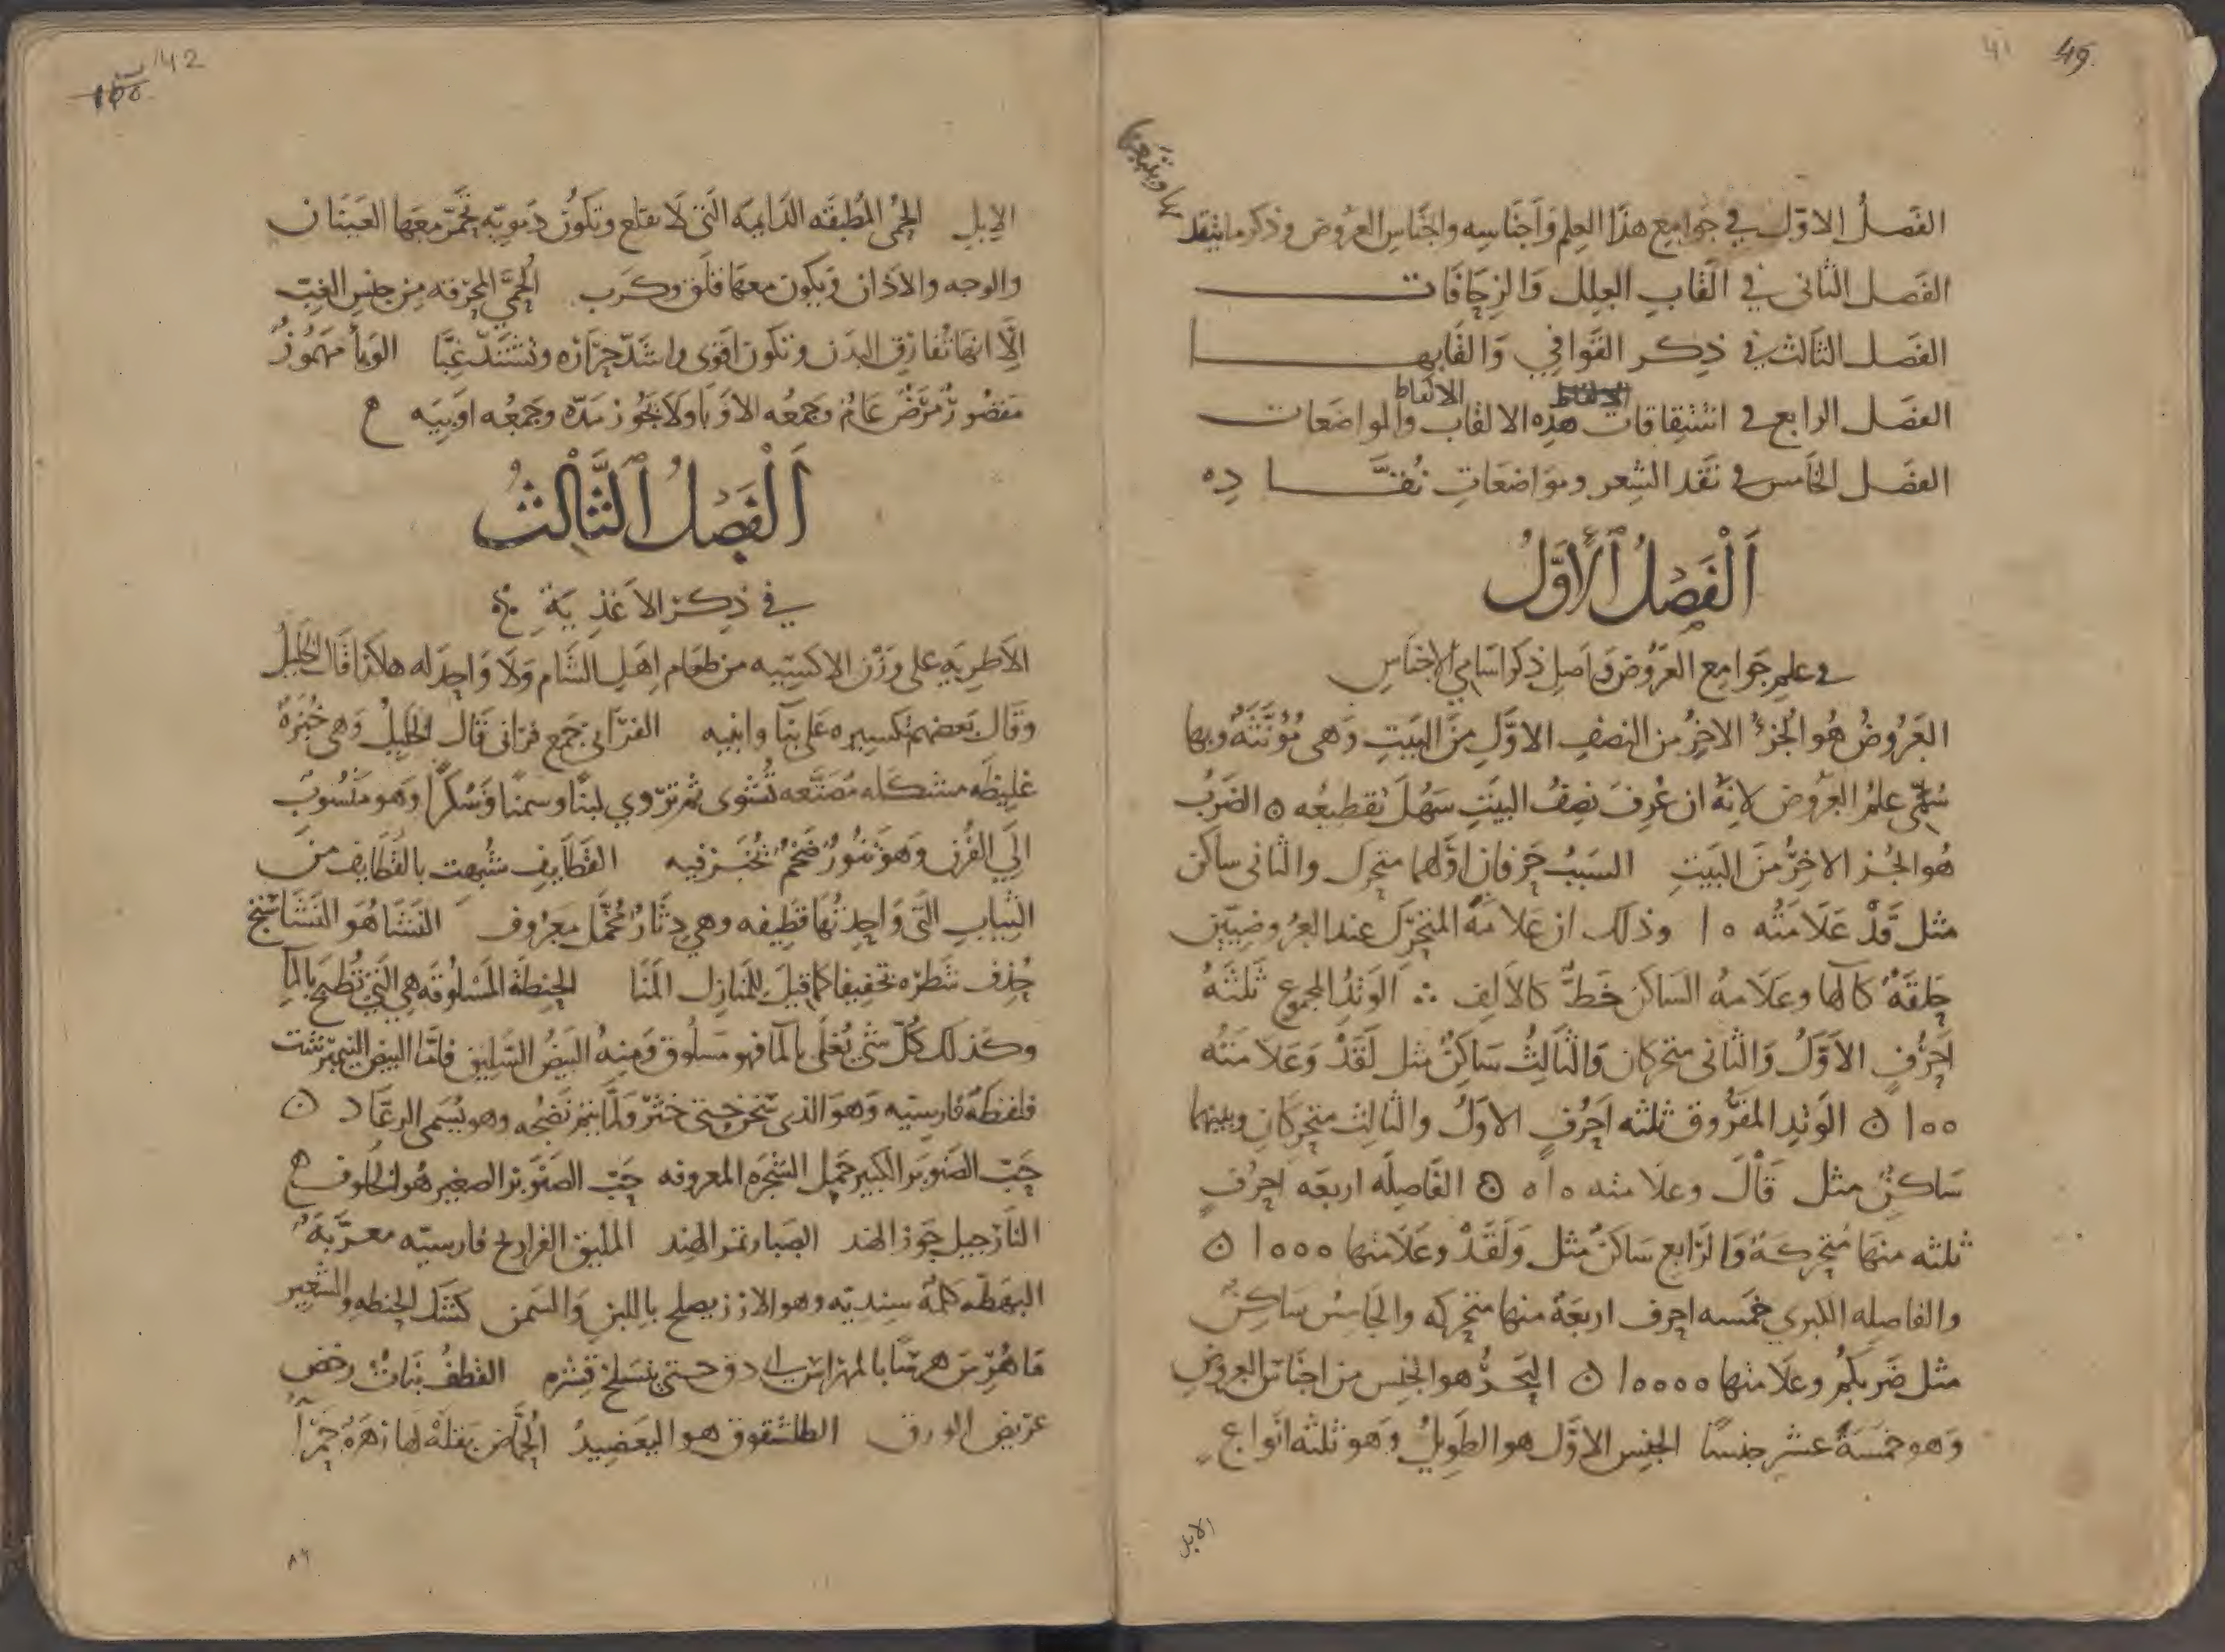 49
41
الفصل الاول في جوامع هذا العلم واجناسه واجناس العروض وذكر ما يتقد
مها ويتبعها
الفصل الثانى في القاب العلل والزحافات
الفصل الثالث في ذكر القوافي والقابها
الالفاظ
الفصل الرابع في اشتقاقات هذه الالقاب والمواضعات
الفصل الخامس في نقد الشعر ومواضعات نقاده
اَلْفَصْلُ ٱلْأَوَّلُ
في علم جوامع العروض واصل ذكر اسامي الاجناس
العَرُوضُ هُو الجُزءُ الاخِرُ من النصفِ الاوَّلِ مِنَ البَيتِ وَهى مُؤنَّثَهٌ وبها
سُمِّي علمُ العَرُوض لانهُ ان عُرِفَ نصِفُ البيَتِ سَهُلَ تَقطيعُه ٥ الضَربُ
هُو الجُز الاخِرُ مِنَ البَيَتِ السَببُ حَرفانِ اوَّلهما متحرك والثانى ساكن
مثل قَدْ عَلَامَتُه ١٥ وذلك ان عَلامةُ المتحرّك عند العرُوضِيّين
حَلقَةٌ كالها وعَلَامهُ السَاكن خَطٌّ كالالِف ∴ الوَتِدُ المجموع ثَلثَهُ
اَحرُفٍ الاَوّلُ وَالثانى متحركان وَالثالِثُ سَاكنٌ مثل لَقَدْ وَعَلَامَتُه
١٥٥ ٥ الوَتِد المَفرُوق ثلثه اَحرُفٍ الاوّلُ والثالِث متحركانِ وبينهما
سَاكنٌ مثل قَالَ وعلامته ٥١٥ ٥ الفَاصِلَه اربعَه احرُفٍ
ثلثه منهَا مُتحركهٌ وَالرَابع سَاكنٌ مثل وَلَقَدْ وعَلَامتها ١٥٥٥ ٥
والفاصِله الكبرى خمسه احرف اربعَةٌ منها متحركه والخامسُ ساكنٌ
مثل ضَربكُم وعلامتها ١٥٥٥٥ ٥ البَحرُ هو الجنس من اجناس العروض
وَهو خمسَةُ عشر جنسًا الجنس الاوَّل هو الطَوِيلُ وَهو ثلثه انواع
الابل
42
الابل الحُمّى المُطبِقَه الدَايمَه الّتى لَا تقلع وتكُونُ دَمويّه تحمّر معَها العَينان
والوجه والاذان ويكون معهَا قلَق وكَرب الحُمَّى المحرقه من جنسِ الغِبّ
الّا انها لا تفارق البدَن وتكون اقوى واشدّ حرَارَه وتشتدّ غِبًّا الوَبأ مهمُوزٌ
مَقصُورٌ مَرَضٌ عَامٌ وجمعُه الاوبَا ولَا يجُوز مَدّه وجَمعُه اَوبيَه
اَلْفَصْلُ ٱلثَّالِثُ
في ذِكر الاغذيَةِ
الاَطرِيَه على وَزْن الاكسيَه من طعَام اهل الشَام وَلَا وَاحدَ له هكذا قَال الخَليلُ
وَقَال بَعضهم تكسيره على بنَا وابنيه الفُرَاني جَمع فرنى قَال الخليلُ وَهى خُبزَهٌ
غليظَه مشكله مُصَنَّعه تُشوى ثم تروي لبنًا وسمنًا وسُكرًا وَهو مَنسُوبٌ
الي الفُرن وَهو تنُّورٌ ضَخمٌ يُخبَز فيه القطَايف شُبهَت بالقطَايف من
الثيابِ الّتى وَاحِدتُها قطِيفه وهي دِثَارٌ مُخمَّل معرُوف النَشَا هُوَ النَشاستج
حُذِف شطرُه تخفيفا كما قيلَ للمنَازل المنَا الحِنطةُ المسلوقه هى الّتى تُطبخ بالمآ
وكذلك كلّ شئ يُغلَى بالما فهو مَسلُوق ومنهُ البيضُ السَليق فامّا البيضُ النيمبرشت
فلفظةٌ فارسيّه وَهو الذى سُخن حتى خثَرَ ولمّا يتمّ نضجُه وهو يُسمى الرعّاد ٥
حَبّ الصَنوبَر الكبير حمل الشجَرَه المعروفه حَبّ الصَنوبَر الصغير هو الجلوز
النَارجيل جَوز الهند الصَبار تمر الهند الملبق الفراريج فارسيّه معرّبَهٌ
البهَطَّه كلمةٌ سنديّه وهو الارز يصلح باللبن وَالسَمن كشك الحِنطه والشعير
مَا هُرس هرسًا بالمهراس اى دق حتى ينسلخ قِشره القطفُ نبَات رخص
عَريض الورق الطلشقوق هو اليَعضيدُ الحُمّاض بَقلَهٌ لها زهرَهٌ حمرآ
٨٢